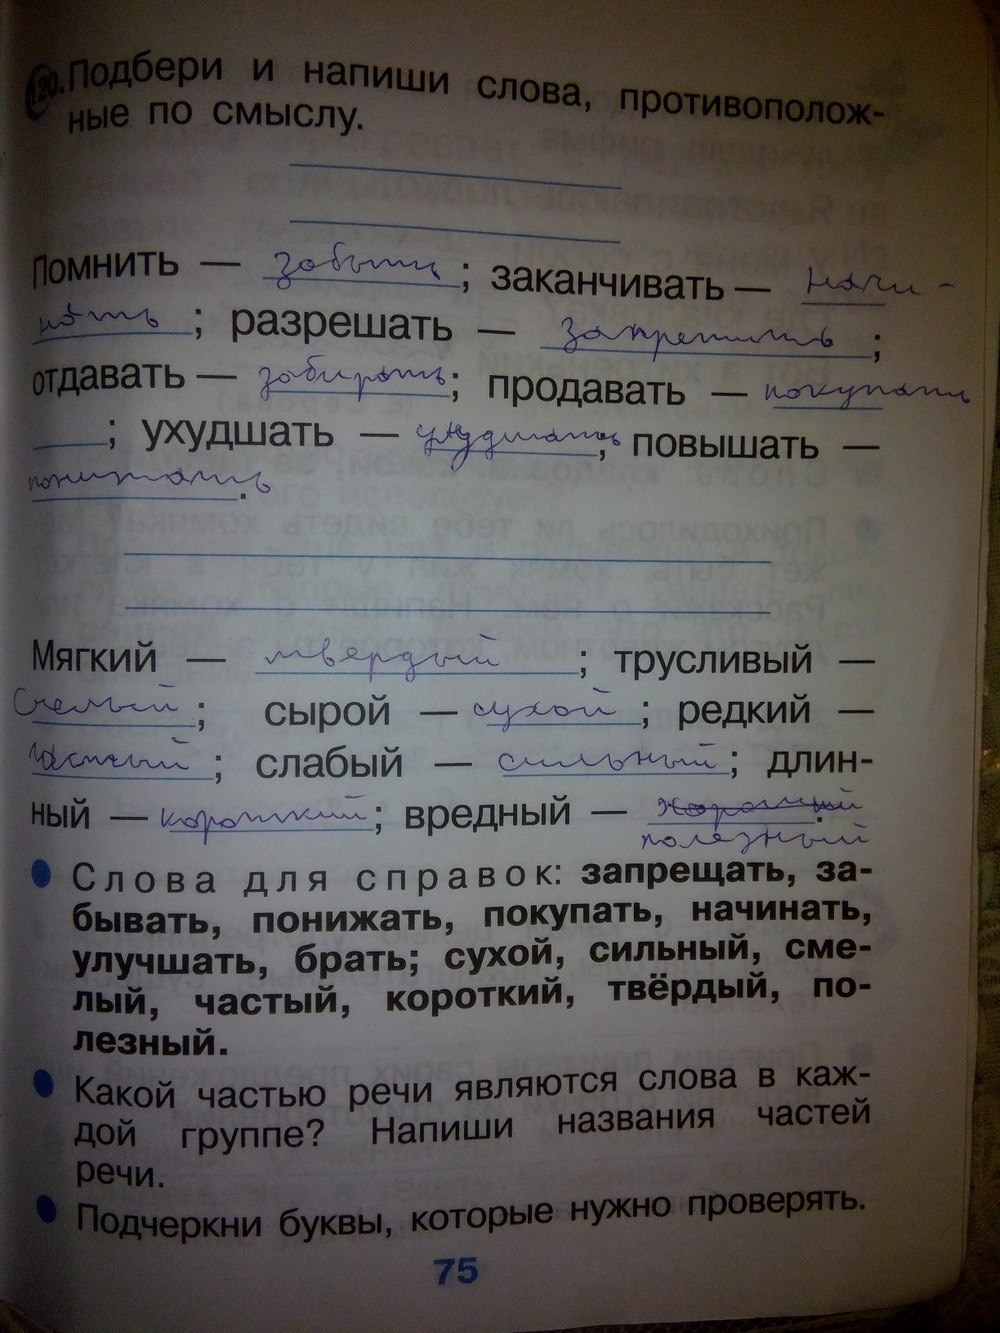 120. Подбери и напиши слова, противополож-
ные по смыслу.
Помнить — забыть ; заканчивать — начи-
нать ; разрешать — запретить ;
отдавать — забирать ; продавать — покупать
; ухудшать — , повышать —
понижать .
Мягкий — твердый ; трусливый —
Смелый ; сырой — сухой ; редкий —
Частый ; слабый — сильный ; длин-
ный — короткий ; вредный — хороший .
полезный
Слова для справок: запрещать, за-
бывать, понижать, покупать, начинать,
улучшать, брать; сухой, сильный, сме-
лый, частый, короткий, твёрдый, по-
лезный.
Какой частью речи являются слова в каж-
дой группе? Напиши названия частей
речи.
Подчеркни буквы, которые нужно проверять.
75